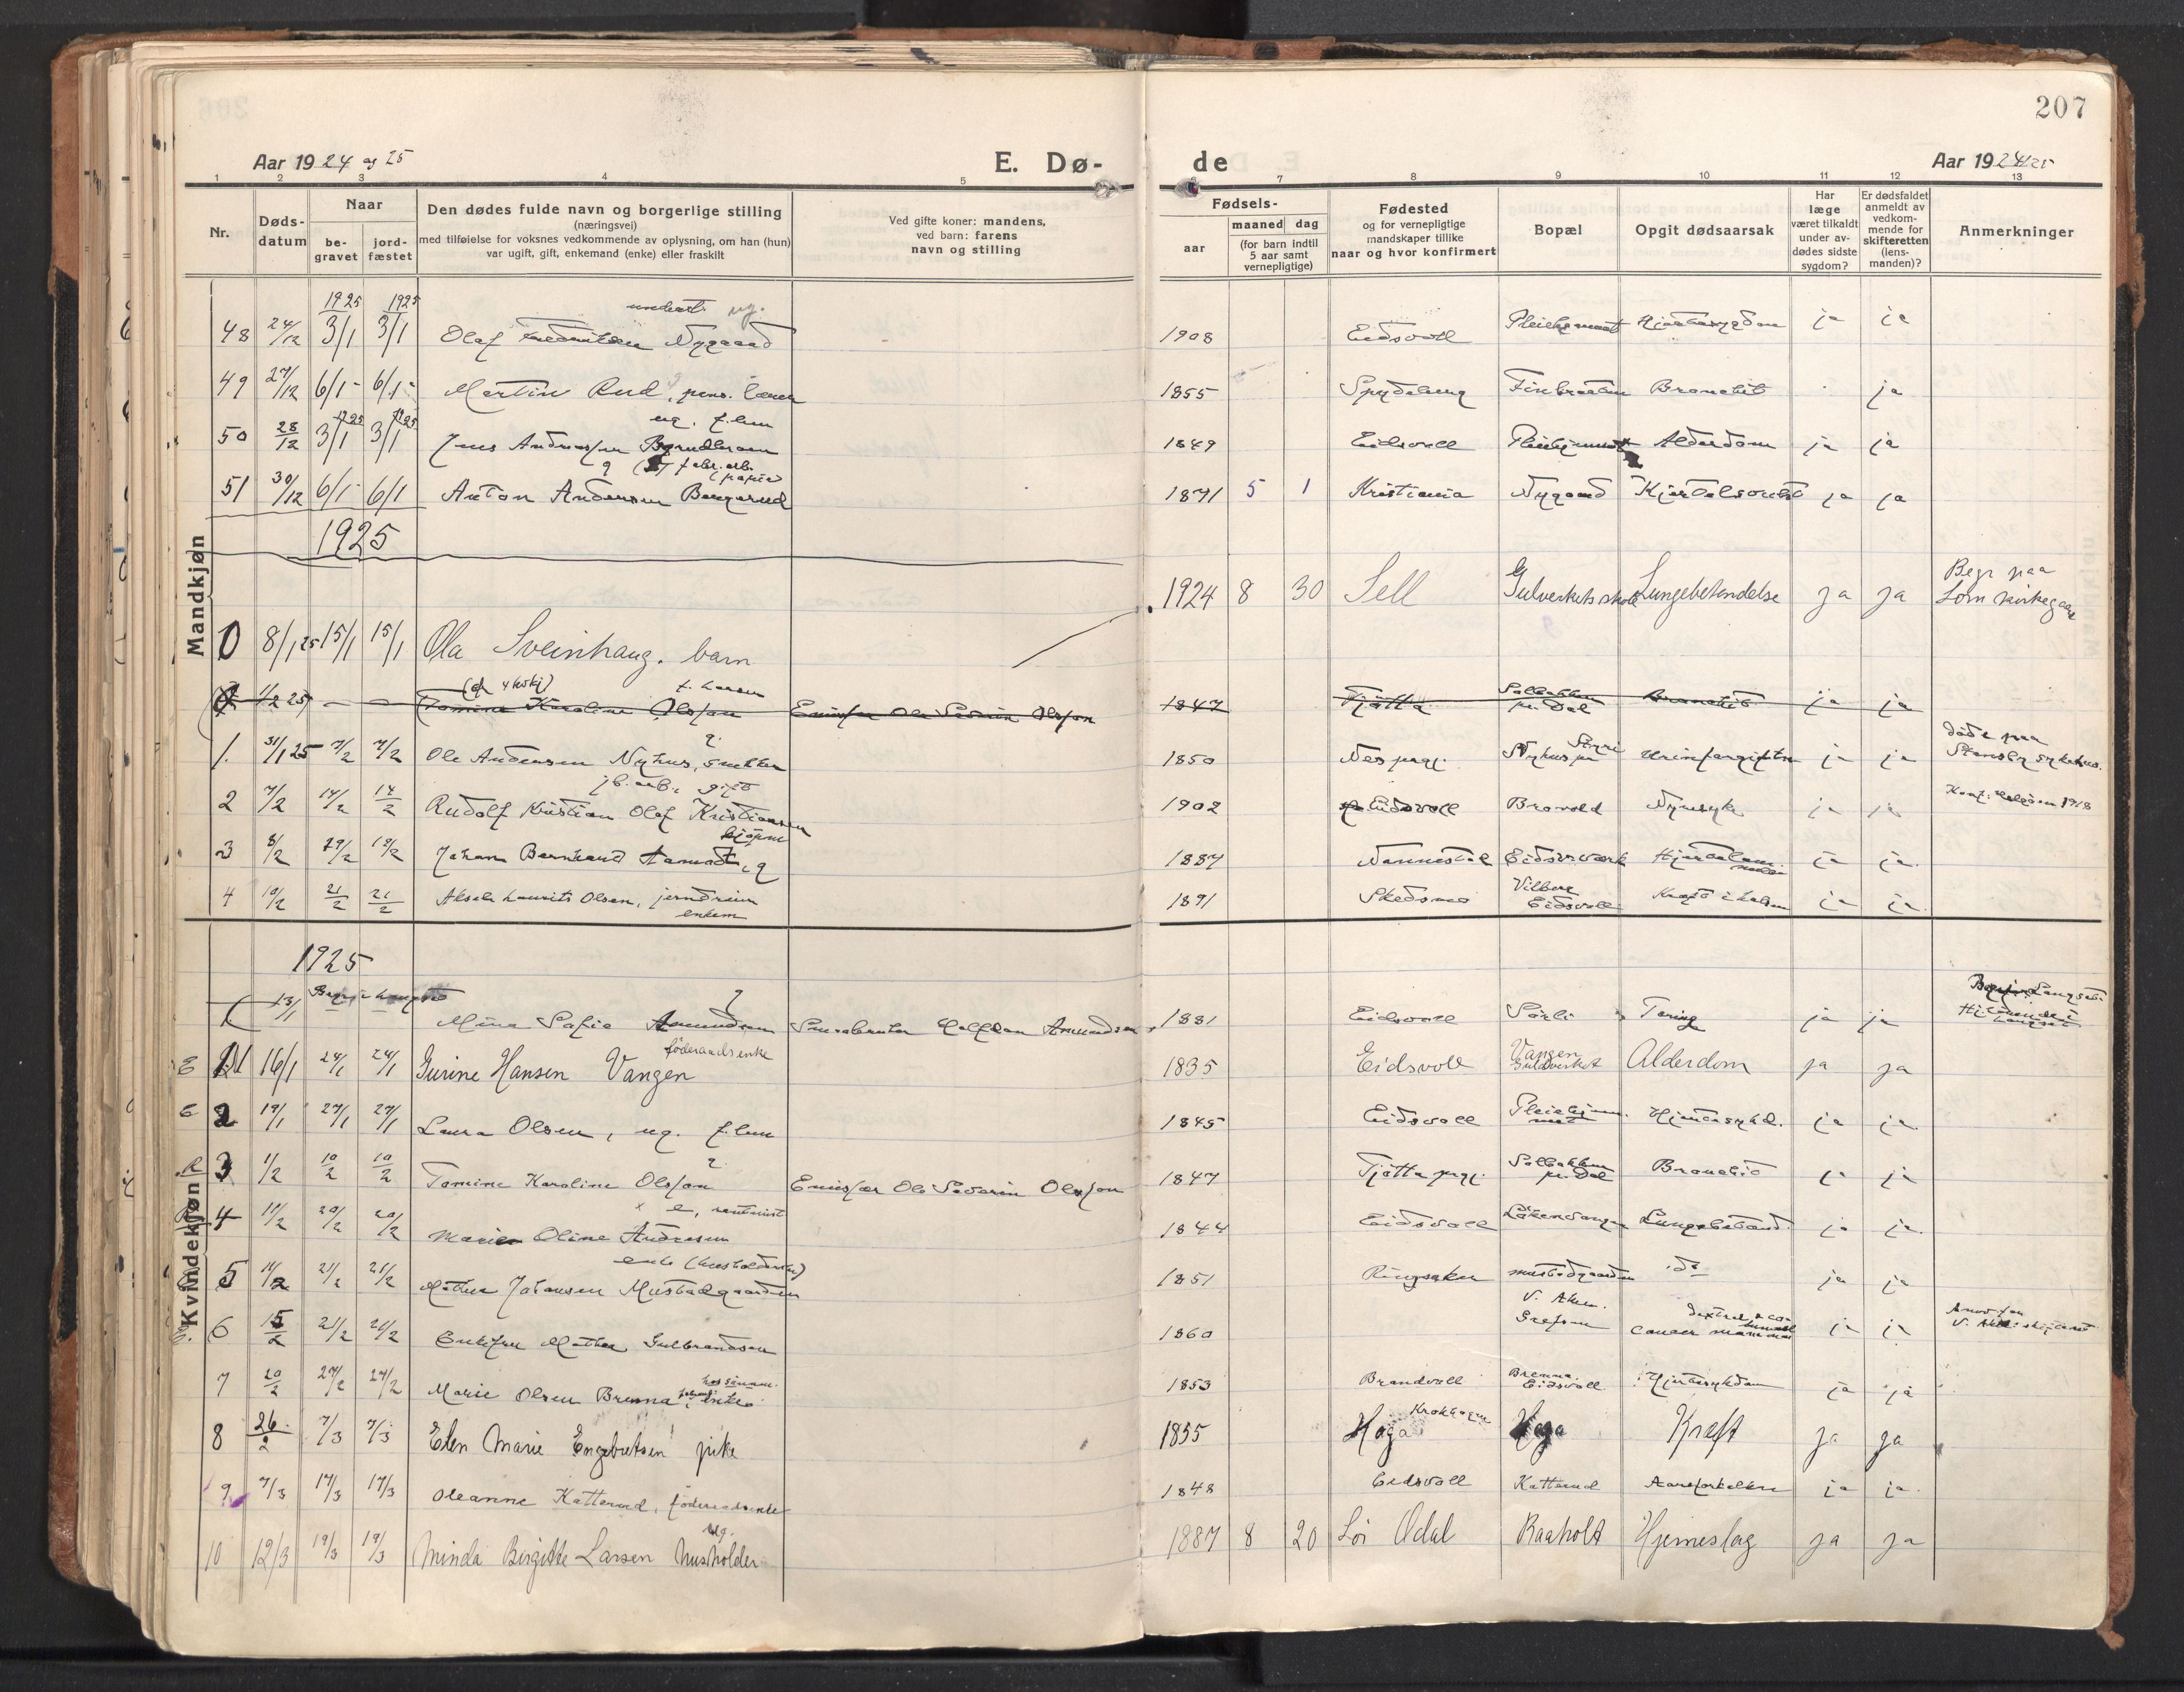 207
Aar 1924 og 25
E. Dø-
de
Aar 1924/25
1 2 3 4 5 6 7 8 9 10 11 12 13
Nr.
Døds-
datum
Naar
be-
gravet
jord-
fæstet
Den dødes fulde navn og borgerlige stilling
(næringsvei)
med tilføielse for voksnes vedkommende av oplysning, om han (hun)
var ugift, gift, enkemand (enke) eller fraskilt
Ved gifte koner: mandens,
ved barn: farens
navn og stilling
Fødsels-
aar
maaned dag
(for barn indtil
5 aar samt
vernepligtige)
Fødested
og for vernepligtige
mandskaper tillike
naar og hvor konfirmert
Bopæl
Opgit dødsaarsak
Har
læge
været tilkaldt
under av-
dødes sidste
sygdom?
Er dødsfaldet
anmeldt av
vedkom-
mende for
skifteretten
(lens-
manden)?
Anmerkninger
Mandkjøn
1925 1925
underst. ug.
48 24/12 3/1 3/1 Olaf Nygaard 1908 Eidsvoll Hjertesygdom ja ja
49 27/12 6/1- 6/1- Martin Rud, pens. 1855 Spydeberg Bronchit ja
1925 1925 ug. f. lem
50 28/12 3/1 3/1 Jens Andreassen 1849 Eidsvoll Alderdom ja ja
g f abr. arb.
(papir)
51 30/12 6/1- 6/1 Anton Andersen Bergerud 1871 5 1 Kristiania Nygaard ja ja
1925
0 8/1 25 15/1 15/1 Ola Sveinhaug. barn 1924 8 30 Sell Gulverkets skole Lungebetendelse ja ja Begr paa
Lom kirkegaar
1/2 25 - - Tomine Karoline Olsson Emissær Ole Severin Olsson 1847 Tjøtta Solbakken
pr. Dal Bronchit ja ja
1. 31/1 25 7/2 7/2 Ole Andersen Nyhus, snekker g. 1850 Nes prgj. Nyhus pr Styri Urinforgiftn ja ja døde paa
Stensby sykehus.
j b. arb., gift
2 7/2 14/2 14/2 Rudolf Kristian Olaf Kristiansen 1902 Eidsvoll Brovold Nyresyk ja ja
kjøpm
3 8/2 19/2 Johan Bernhard, g 1887 Nannestad Eidsv.værk ja ja.
4 10/2 21/2 21/2 Aksel Laurits Olsen,
enkem 1891 Skedsmo Vilberg
Eidsvoll Kræft i halsen ja ja.
1925
Kvindekjøn
13/1 Mina Sofie Amundsen g Halfdan Amundsen 1881 Eidsvoll Sørli Tæring ja ja
føderaadsenke
E 1 16/1 24/1 24/1 Gurine Hansen Vangen 1835 Eidsvoll Vangen
Guldverket Alderdom ja ja
E 2 19/1 27/1 27/1 Laura Olsen, ug. f. lem 1845 Eidsvoll Hjertesykd. ja ja.
R 3 1/2 10/2 10/2 Tomine Karoline Olsson g. Emissær Ole Severin Olsson 1847 Tjøtta prgj. Solbakken
pr. Dal Bronchit ja ja
e,
4 11/2 20/2 20/2 Marie Oline Andresen 1844 Eidsvoll Lungebetænd. ja ja.
enke (husholderske)
5 14/2 21/2 21/2 Mathea Johansen Mustadgaarden 1851 Ringsaker Mustadgaarden do ja ja
E. 6 15/2 21/2 21/2 Enkefru Mathea Gulbrandsen 1860 V. Aker.
Grefsen cancer mammae ja ja
7 20/2 27/2 27/2 Marie Olsen Brenna, enke 1853 Brandvoll Brenna.
Eidsvoll Hjertesykdom ja ja
8 26/2 7/3 7/3 Elen Marie Engebretsen pike 1855 Haga Haga Kræft ja ja
9 7/3 17/3 17/3 Oleanne Katterud, føderaadsenke 1848 Eidsvoll Katterud Aareforkalkn ja ja.
ug.
10 12/3 19/3 19/3 Minda Birgitte Larsen husholder 1887 8 20 Sør Odal Raaholt Hjerneslag ja ja